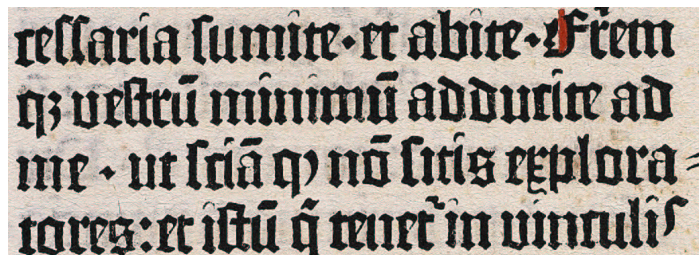 ceſſaria ſumite·et abite·Fr̄em
qꝫ veſtrū minimū adducite ad
me · ut ſciā ꝙ nō ſitis explora
tores: et iſtū q̄ tenet᷑ in vinculiſ